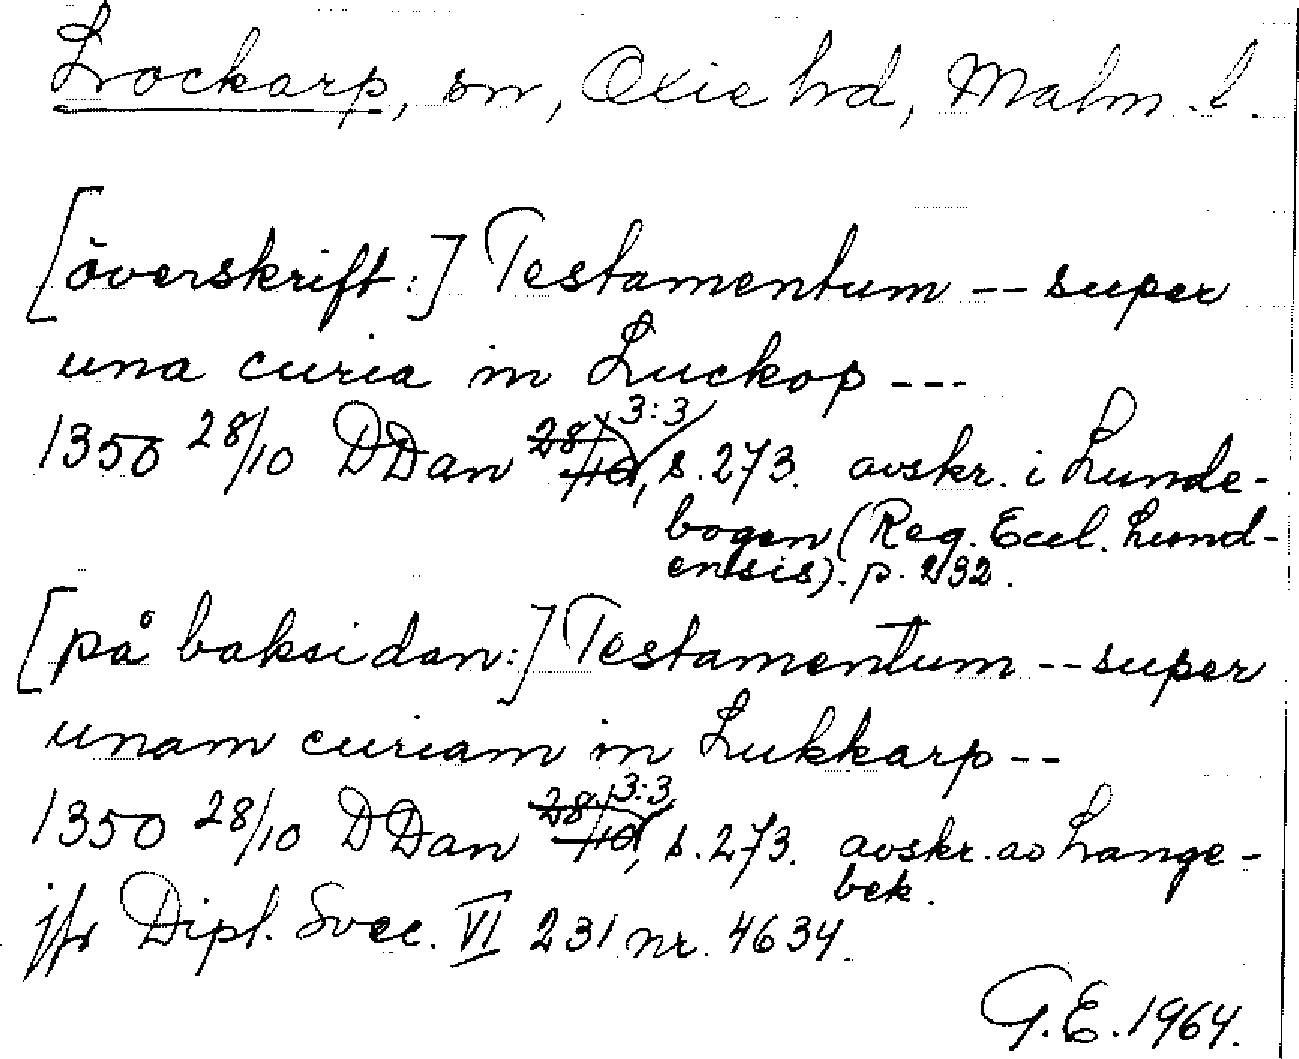 Lockarp, sn, Oxie hd, Malm. l.
[överskrift:] Testamentum -- super
una curia in Luckop ---
1350 28/10 DDan 28/10 3:3, s. 273. avskr. i Lunde-
bogen (Reg. Eccl. Lund-
ensis). p. 232.
[på baksidan:] Testamentum -- super
unam curiam in Lukkarp --
1350 28/10 DDan 28/10 3:3, s. 273. avskr. av Lange-
bek.
jfr Dipl. Svec. VI 231 nr. 4634.
G.E. 1964.